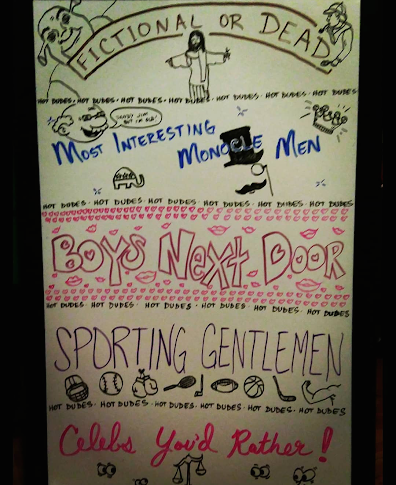 FICTIONAL OR DEAD
HOT DUDES · HOT DUDES · HOT DUDES · HOT DUDES · HOT DUDES · HOT DUDES · HOT DUDES
MOST INTERESTING
MONOCLE MEN
HOT DUDES · HOT DUDES · HOT DUDES · HOT DUDES · HOT DUDES · HOT DUDES
BOYS NEXT DOOR
HOT DUDES · HOT DUDES · HOT DUDES · HOT DUDES · HOT DUDES · HOT DUDES
SPORTING GENTLEMEN
HOT DUDES · HOT DUDES · HOT DUDES · HOT DUDES · HOT DUDES · HOT DUDES
Celebs You'd Rather!